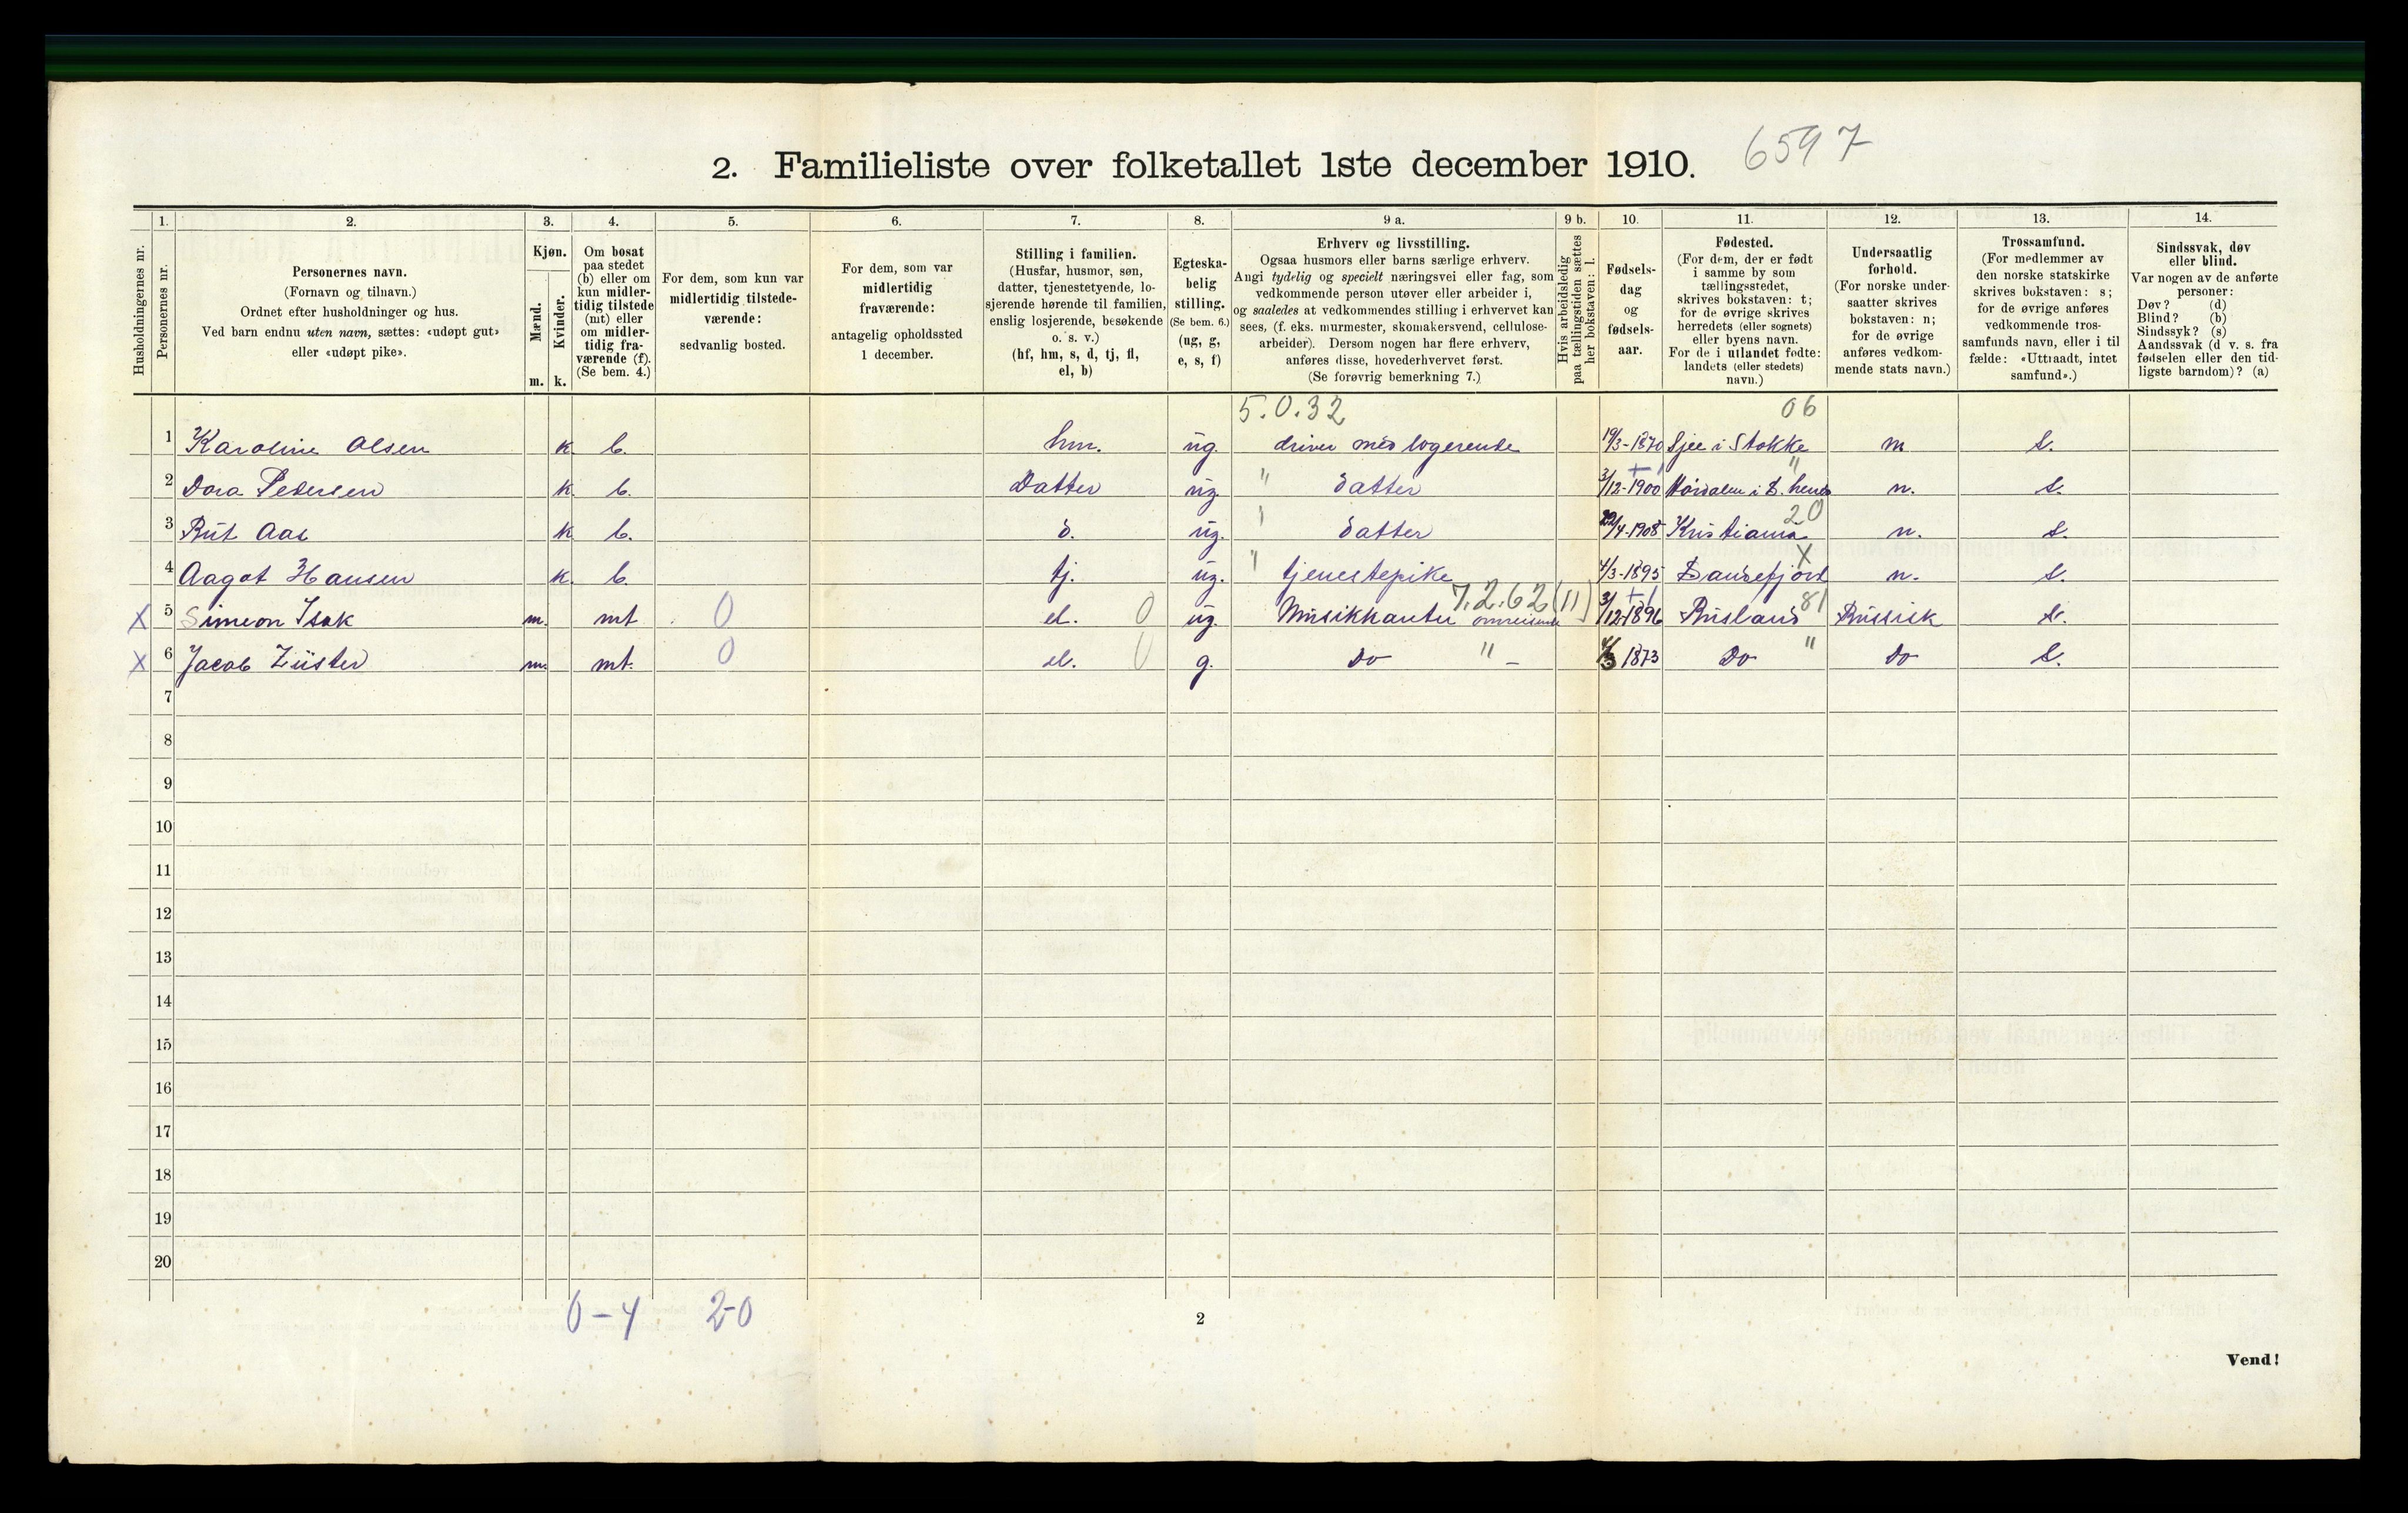 2. Familieliste over folketallet 1ste december 1910. 6597
Husholdningernes nr.
1. Personernes nr.
2. Personernes navn.
(Fornavn og tilnavn.)
Ordnet efter husholdninger og hus.
Ved barn endnu uten navn, sættes: «udøpt gut»
eller «udøpt pike».
3. Kjøn.
Mænd. m.
Kvinder. k.
4. Om bosat
paa stedet
(b) eller om
kun midler-
tidig tilstede
(mt) eller
om midler-
tidig fra-
værende (f).
(Se bem. 4.)
5. For dem, som kun var
midlertidig tilstede-
værende:
sedvanlig bosted.
6. For dem, som var
midlertidig
fraværende:
antagelig opholdssted
1 december.
7. Stilling i familien.
(Husfar, husmor, søn,
datter, tjenestetyende, lo-
sjerende hørende til familien,
enslig losjerende, besøkende
o. s. v.)
(hf, hm, s, d, tj, fl,
el, b)
8. Egteska-
belig
stilling.
(Se bem. 6.)
(ug, g,
e, s, f)
9 a. Erhverv og livsstilling.
Ogsaa husmors eller barns særlige erhverv.
Angi tydelig og specielt næringsvei eller fag, som
vedkommende person utøver eller arbeider i,
og saaledes at vedkommendes stilling i erhvervet kan
sees, (f. eks. murmester, skomakersvend, cellulose-
arbeider). Dersom nogen har flere erhverv,
anføres disse, hovederhvervet først.
(Se forøvrig bemerkning 7.)
9 b. Hvis arbeidsledig
paa tællingstiden sættes
her bokstaven: l.
10. Fødsels-
dag
og
fødsels-
aar.
11. Fødested.
(For dem, der er født
i samme by som
tællingsstedet,
skrives bokstaven: t;
for de øvrige skrives
herredets (eller sognets)
eller byens navn.
For de i utlandet fødte:
landets (eller stedets)
navn.)
12. Undersaatlig
forhold.
(For norske under-
saatter skrives
bokstaven: n;
for de øvrige
anføres vedkom-
mende stats navn.)
13. Trossamfund.
(For medlemmer av
den norske statskirke
skrives bokstaven: s;
for de øvrige anføres
vedkommende tros-
samfunds navn, eller i til
fælde: «Uttraadt, intet
samfund».)
14. Sindssvak, døv
eller blind.
Var nogen av de anførte
personer:
Døv? (d)
Blind? (b)
Sindssyk? (s)
Aandssvak (d. v. s. fra
fødselen eller den tid-
ligste barndom)? (a)
5.0.32 06
1 Karoline Olsen k. b. hm. ug. driver med logerende 19/3-1870 i Stokke n s.
2 Dora Pedersen k. b. Datter ug. " datter 3/12-1900 " n. s.
3 Rut Aas k b. d. ug. " datter 22/4-1908 Kristiania 20 n. s.
4 Aagot Hansen k. b. tj. ug. " tjenestepike 4/3-1895 Sandefjord X n. s.
X 5 Simeon Isak m. mt 0 el. 0 ug. Musikkanter omreisende 7.2.62 (11) 31/12-1896 Rusland 81 Russisk s.
X 6 Jacob Züster m. mt. 0 el. 0 g. Do " - 1873 Do " Do s.
7
8
9
10
11
12
13
14
15
16
17
18
19
20
0-4 2-0
2
Vend!